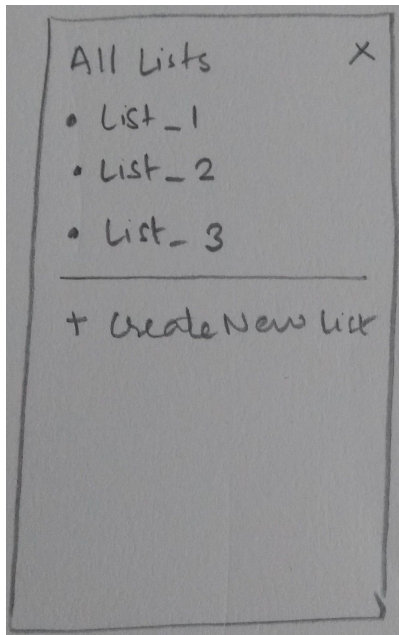 All Lists ×
• List_1
• List_2
• List_3
+ Create New List